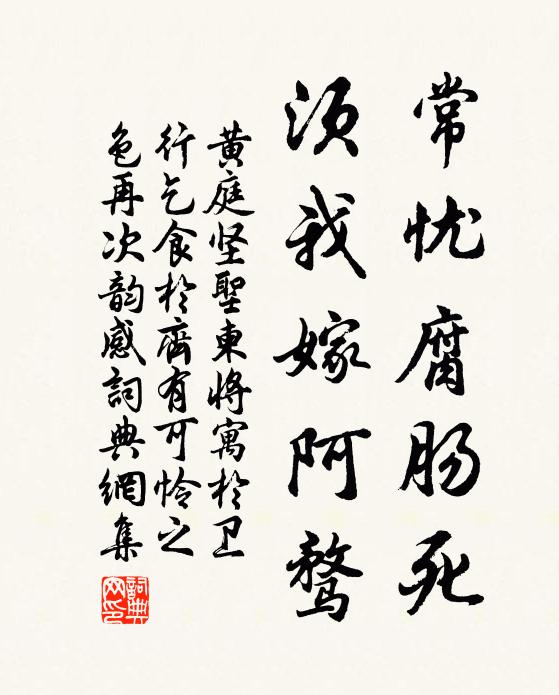 常忧腐肠死
须我嫁阿鹜
黄庭坚聖東将寓於卫
行乞食於齊有可怜之
色再次韵感詞典網集
詞典
网印